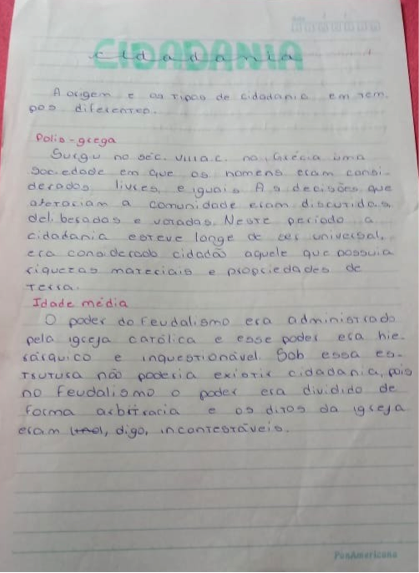 CIDADANIA
cidadania
A origem e os tipos de cidadania em tem
pos diferentes.
Polis-grega
Surgiu no séc. VIII a.C. na Grécia uma
sociedade em que os homens eram consi-
derados livres, e iguais. As decisões que
afetariam a comunidade eram discutidas,
deliberadas e votadas. Neste período a
cidadania esteve longe de ser universal,
era considerado cidadão aquele que possuia
riquezas materiais e propriedades de
terra.
Idade média
O poder do feudalismo era administrado
pela igreja católica e esse poder era hie-
rárquico e inquestionável. Sob essa es-
trutura não poderia existir cidadania, pois
no feudalismo o poder era dividido de
forma arbitraria e os ditos da igreja
eram digo, incontestáveis.
PanAmericana